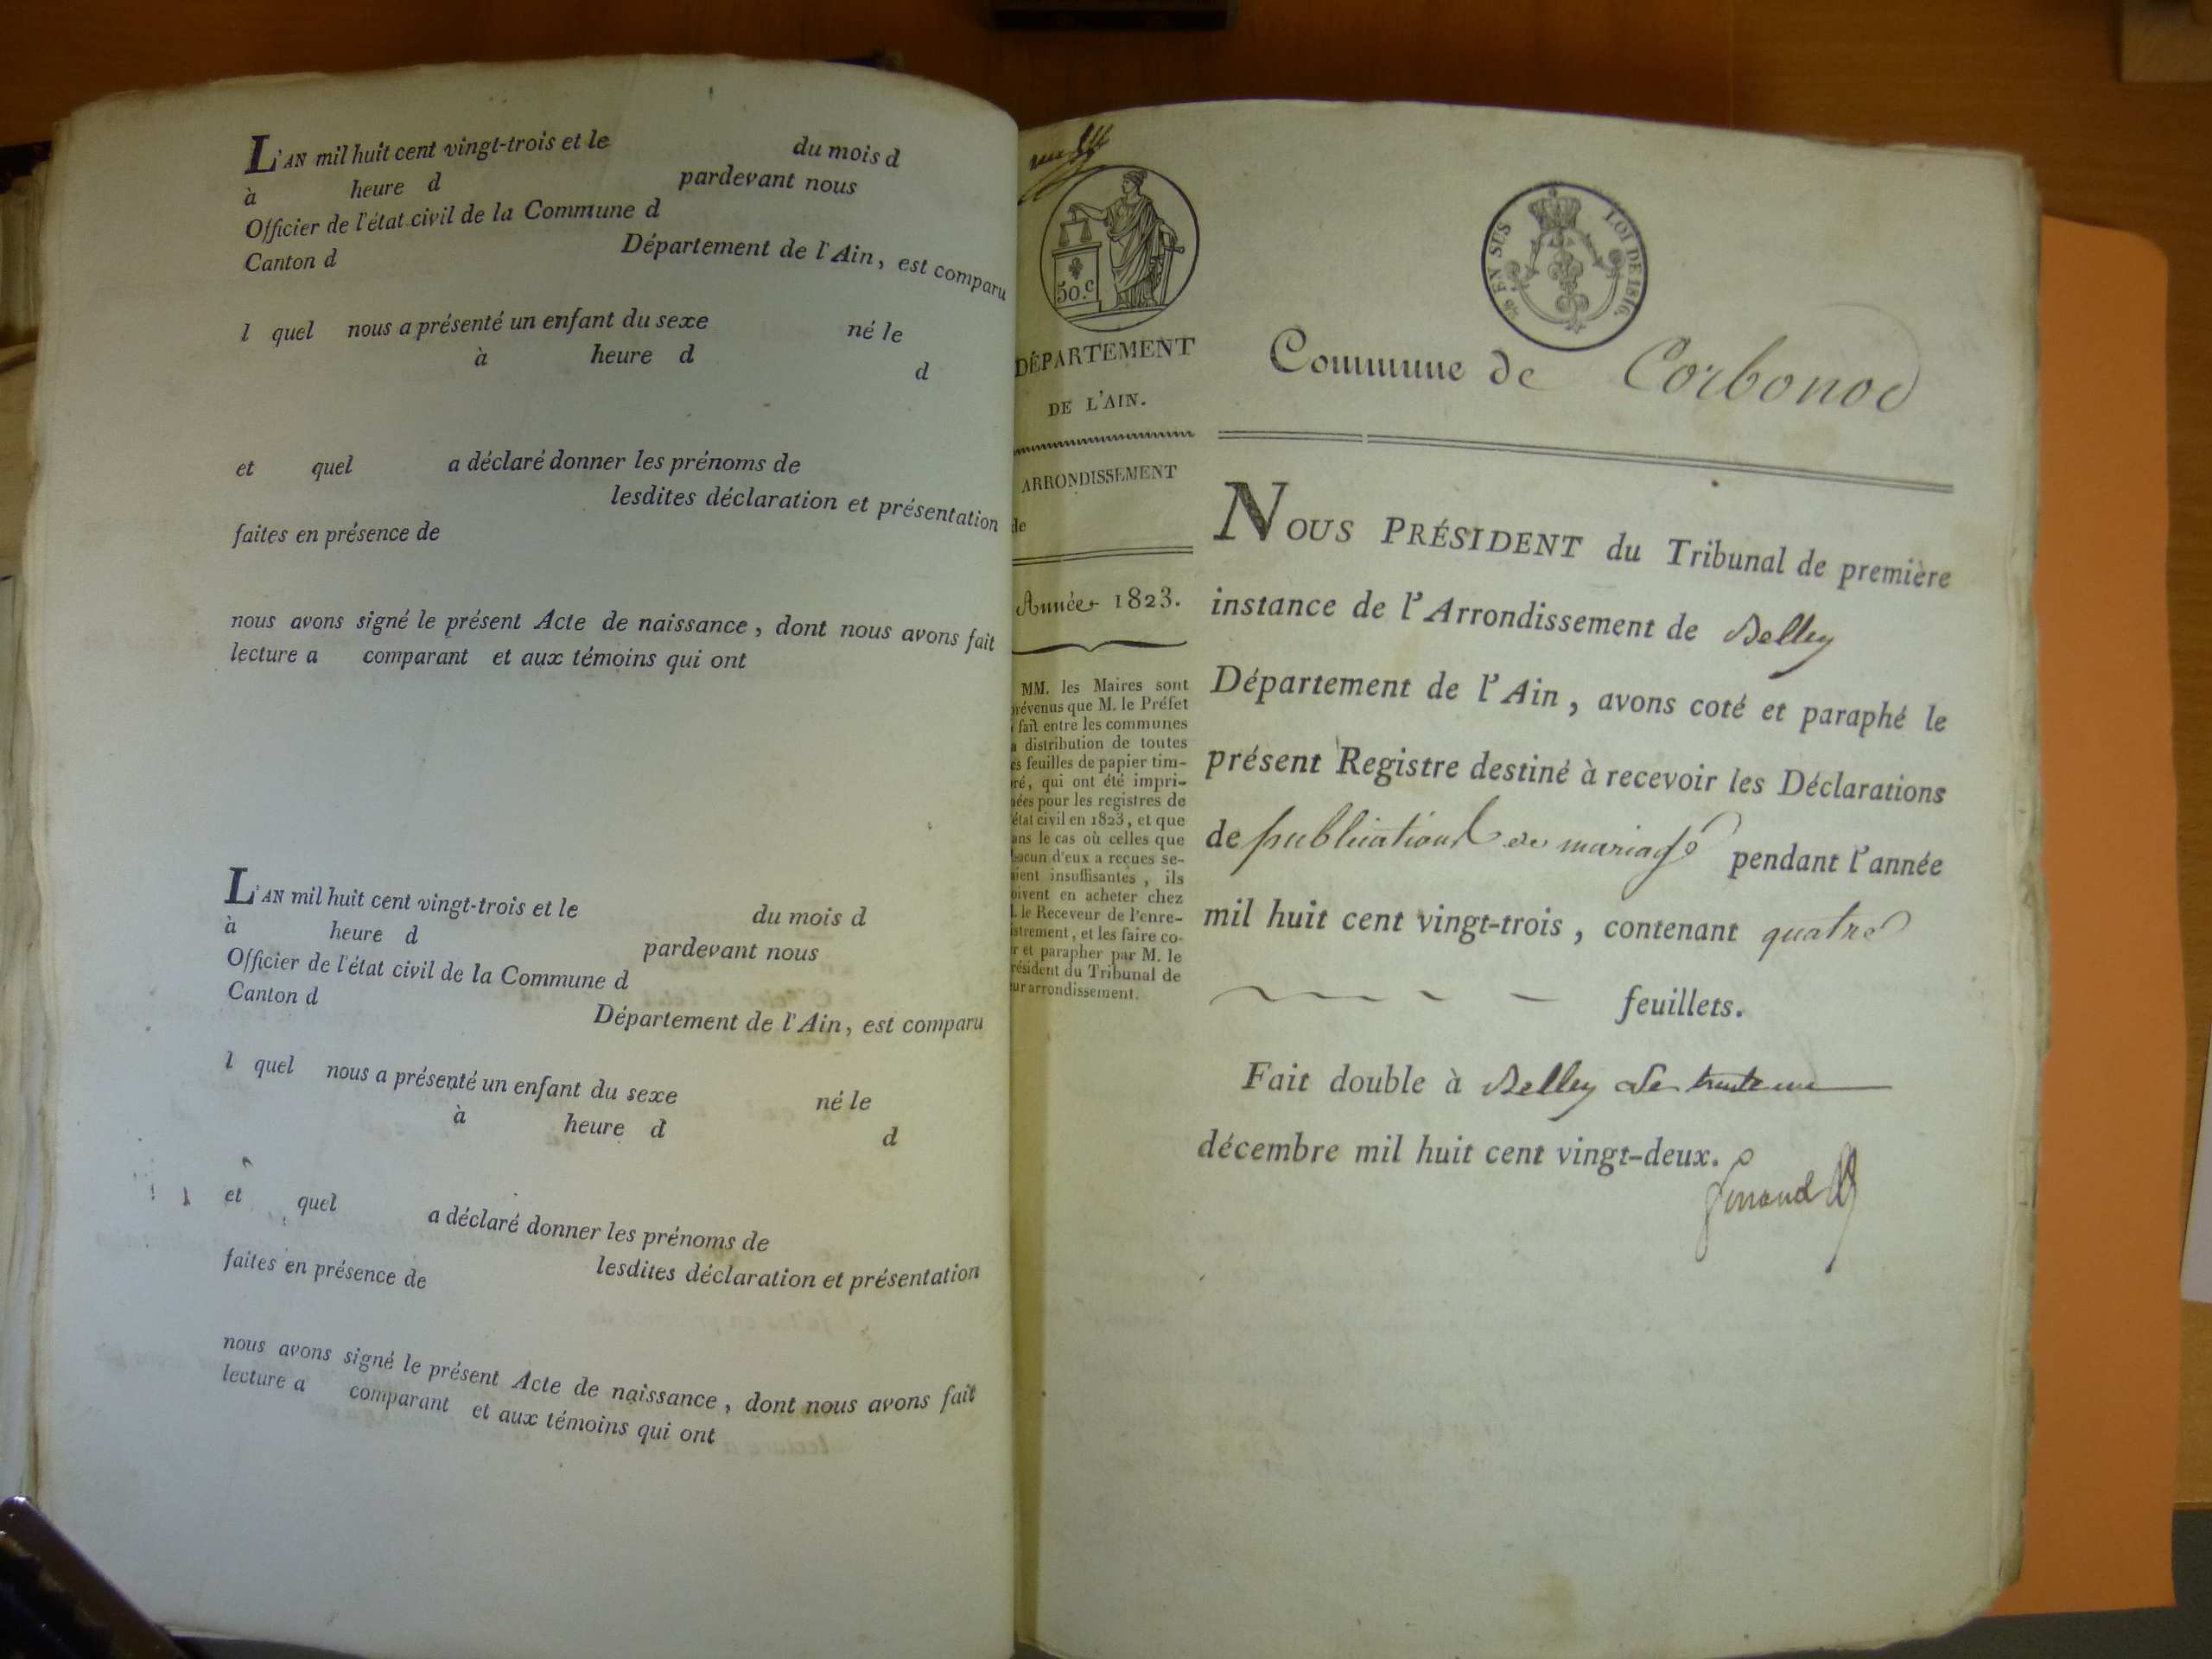 L'AN mil huit cent vingt-trois et le du mois d
à heure d pardevant nous
Officier de l'état civil de la Commune d
Canton d Département de l'Ain, est comparu
l quel nous a présenté un enfant du sexe né le
à heure d d
et quel a déclaré donner les prénoms de
lesdites déclaration et présentation
faites en présence de
nous avons signé le présent Acte de naissance, dont nous avons fait
lecture a comparant et aux témoins qui ont
L'AN mil huit cent vingt-trois et le du mois d
à heure d pardevant nous
Officier de l'état civil de la Commune d
Canton d Département de l'Ain, est comparu
l quel nous a présenté un enfant du sexe né le
à heure d d
et quel a déclaré donner les prénoms de
lesdites déclaration et présentation
faites en présence de
nous avons signé le présent Acte de naissance, dont nous avons fait
lecture a comparant et aux témoins qui ont
50.c
EN SUS LOI DE 1816.
DÉPARTEMENT
DE L'AIN.
ARRONDISSEMENT
de
Année 1823.
MM. les Maires sont
prévenus que M. le Préfet
fait entre les communes
distribution de toutes
es feuilles de papier tim-
ré, qui ont été impri-
ées pour les registres de
état civil en 1823, et que
ans le cas où celles que
acun d'eux a reçues se-
ient insuffisantes, ils
oivent en acheter chez
. le Receveur de l'enre-
istrement, et les faire co-
r et parapher par M. le
résident du Tribunal de
ur arrondissement.
Commune de Corbonod
NOUS PRÉSIDENT du Tribunal de première
instance de l'Arrondissement de Belley
Département de l'Ain, avons coté et paraphé le
présent Registre destiné à recevoir les Déclarations
de publications de mariage pendant l'année
mil huit cent vingt-trois, contenant quatre
feuillets.
Fait double à Belley le trente un
décembre mil huit cent vingt-deux.